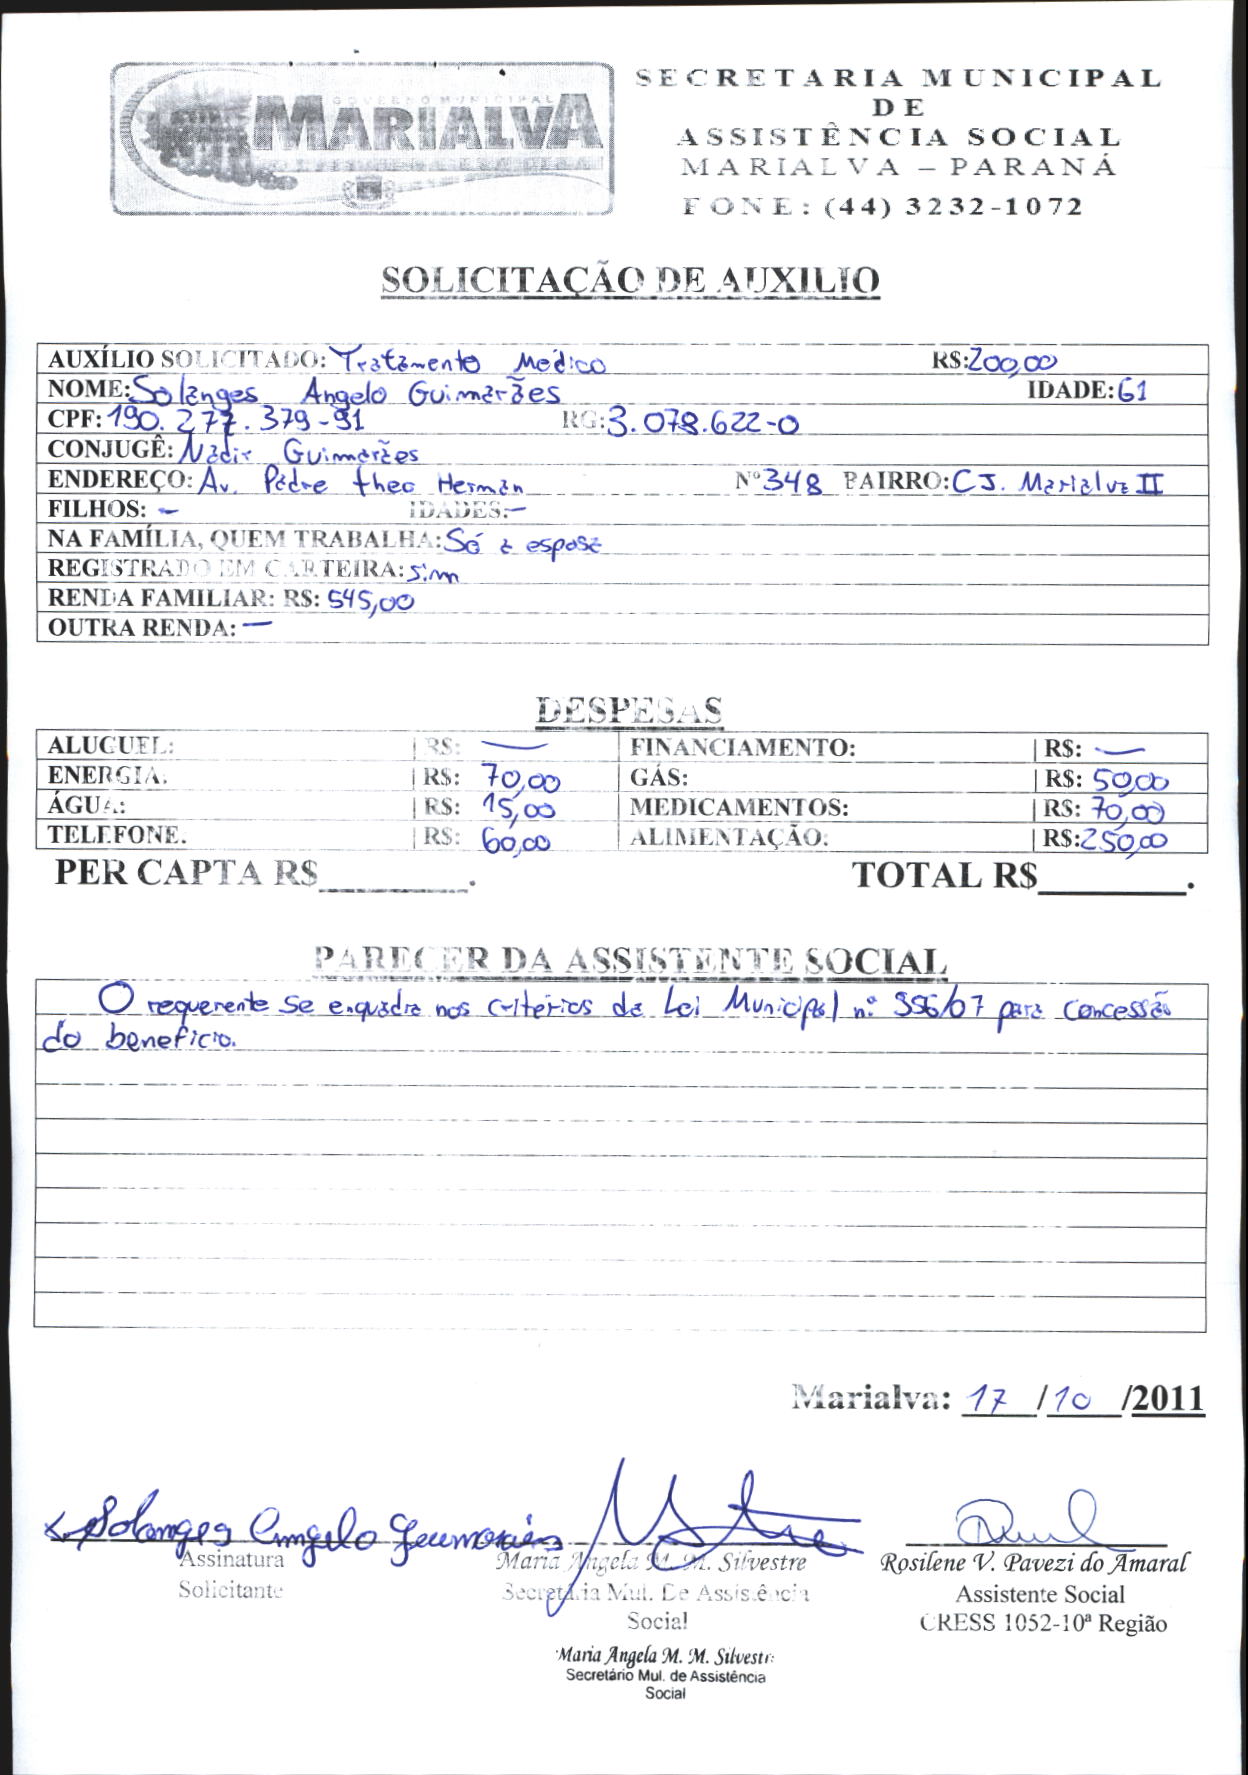 GOVERNO MUNICIPAL
MARIALVA
SECRETARIA MUNICIPAL
DE
ASSISTÊNCIA SOCIAL
MARIALVA – PARANÁ
FONE: (44) 3232-1072
SOLICITAÇÃO DE AUXILIO
AUXÍLIO SOLICITADO: Tratamento Médico R$: 200,00
NOME: Solanges Angelo Guimarães IDADE: 61
CPF: 190.277.379-91 RG: 3.078.622-0
CONJUGÊ: Nadir Guimarães
ENDEREÇO: Av. Padre theo Herman Nº 348 BAIRRO: CJ. Marialva II
FILHOS: – IDADES: –
NA FAMÍLIA, QUEM TRABALHA: Só a esposa
REGISTRADO EM CARTEIRA: sim
RENDA FAMILIAR: R$: 545,00
OUTRA RENDA: –
DESPESAS
ALUGUEL: R$: — FINANCIAMENTO: R$: —
ENERGIA: R$: 70,00 GÁS: R$: 50,00
ÁGUA: R$: 15,00 MEDICAMENTOS: R$: 70,00
TELEFONE: R$: 60,00 ALIMENTAÇÃO: R$: 250,00
PER CAPTA R$________. TOTAL R$________.
PARECER DA ASSISTENTE SOCIAL
O requerente se enquadra nos critérios da Lei Municipal nº /07 para concessão
do benefício.
Marialva: 17 /10 /2011
Solanges Angelo Guimarães
Assinatura Maria Angela M. M. Silvestre Rosilene V. Pavezi do Amaral
Solicitante Secretária Mul. De Assistência Assistente Social
Social CRESS 1052-10ª Região
Maria Angela M. M. Silvestre
Secretário Mul. de Assistência
Social